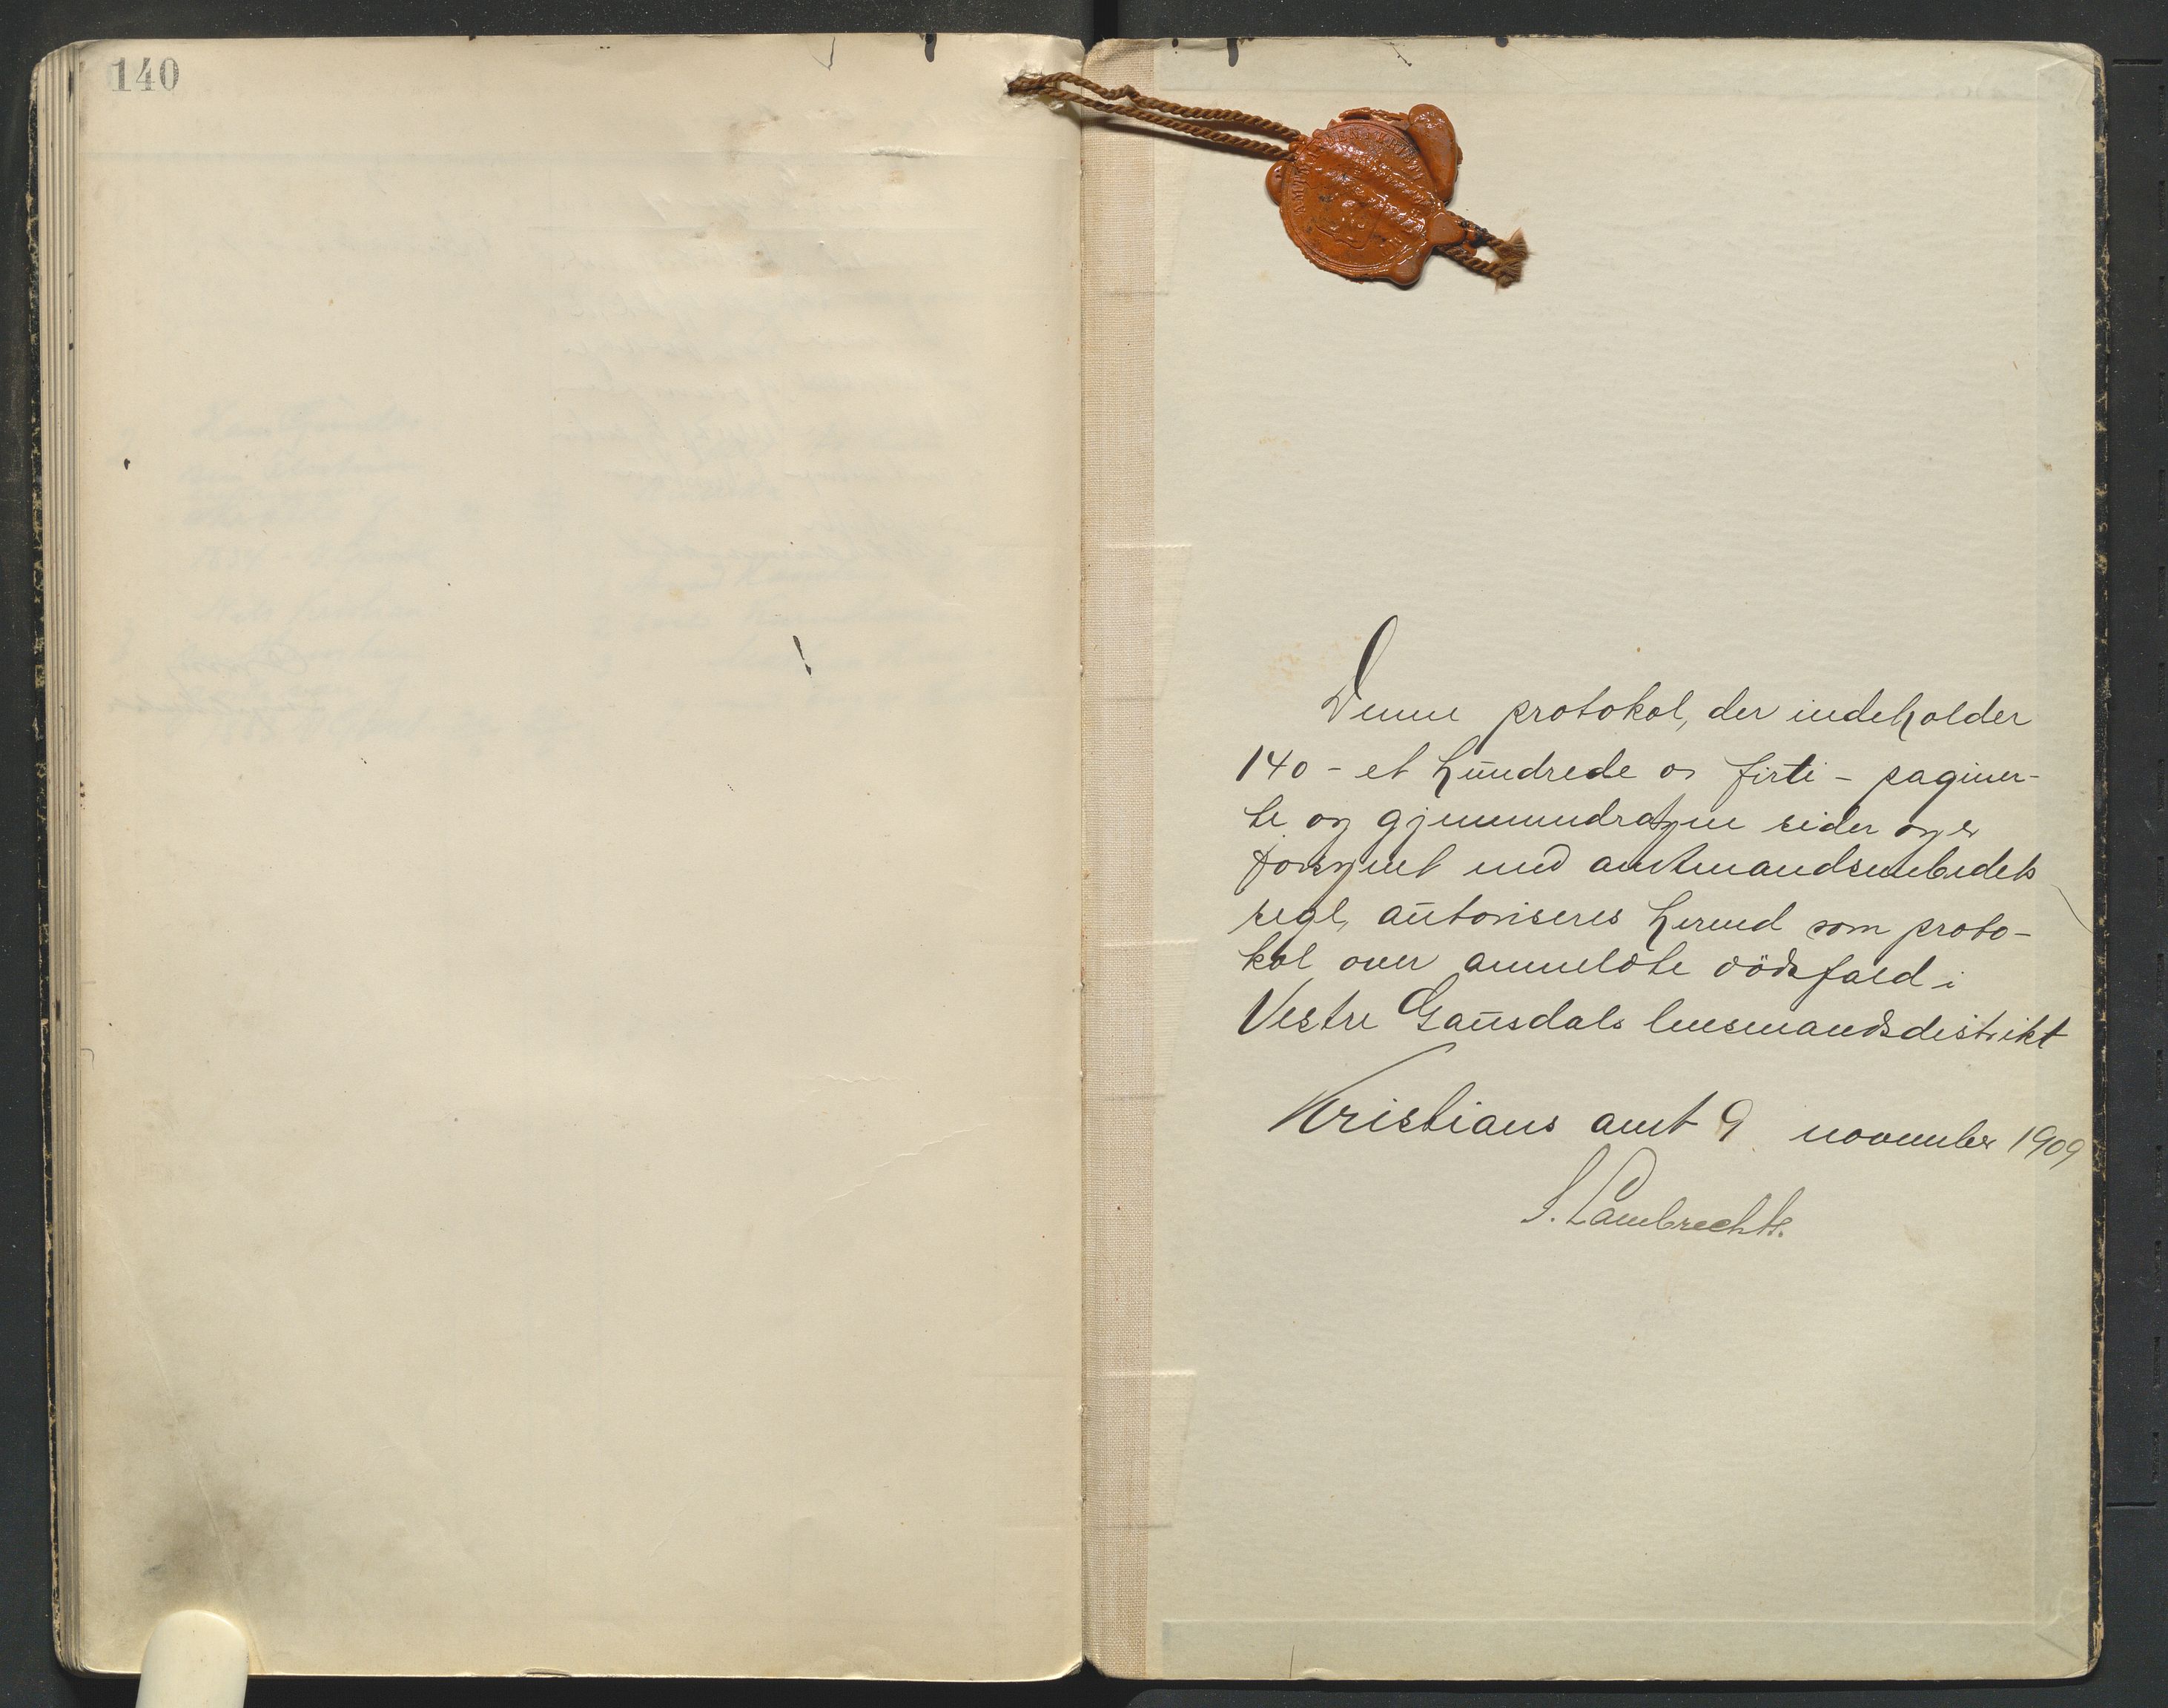 140
Denne protokol, der indeholder
140 - et hundrede og firti - paginer-
te og gjennemdragne sider og er
forsynet med amtmandsembedets
segl, autoriseres herved som proto-
kol over anmeldte dödsfald i
Vestre Gausdals lensmandsdistrikt
Kristians amt 9 november 1909
S. Lambrechts.